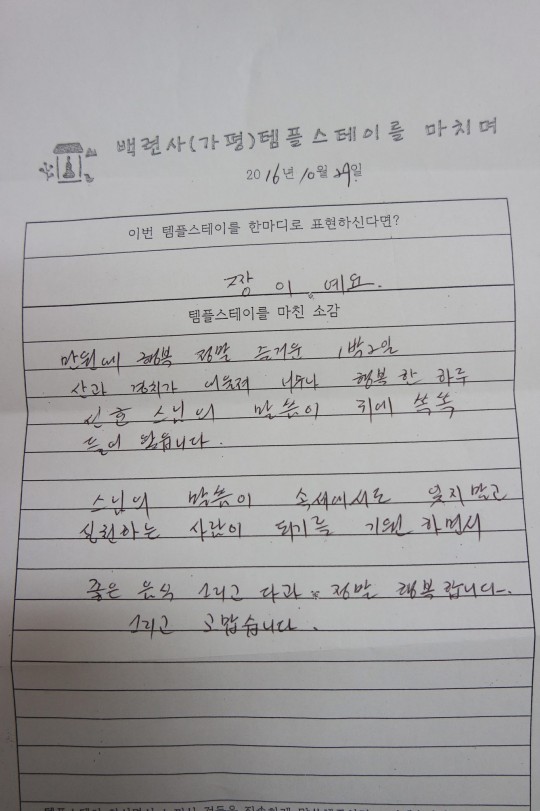 백련사(가평)템플스테이를 마치며
2016년 10월 29일
이번 템플스테이를 한마디로 표현하신다면?
짱 이 예요.
템플스테이를 마친 소감
만원에 행복 정말 즐거운 1박2일
산과 경치가 어울려 너무나 행복한 하루
스님의 말씀이 귀에 쏙쏙
들어 왔습니다.
스님의 말씀이 속세에서도 잊지말고
실천하는 사람이 되기를 기원 하면서
좋은 음식 그리고 다과 정말 행복합니다.
그리고 고맙습니다.